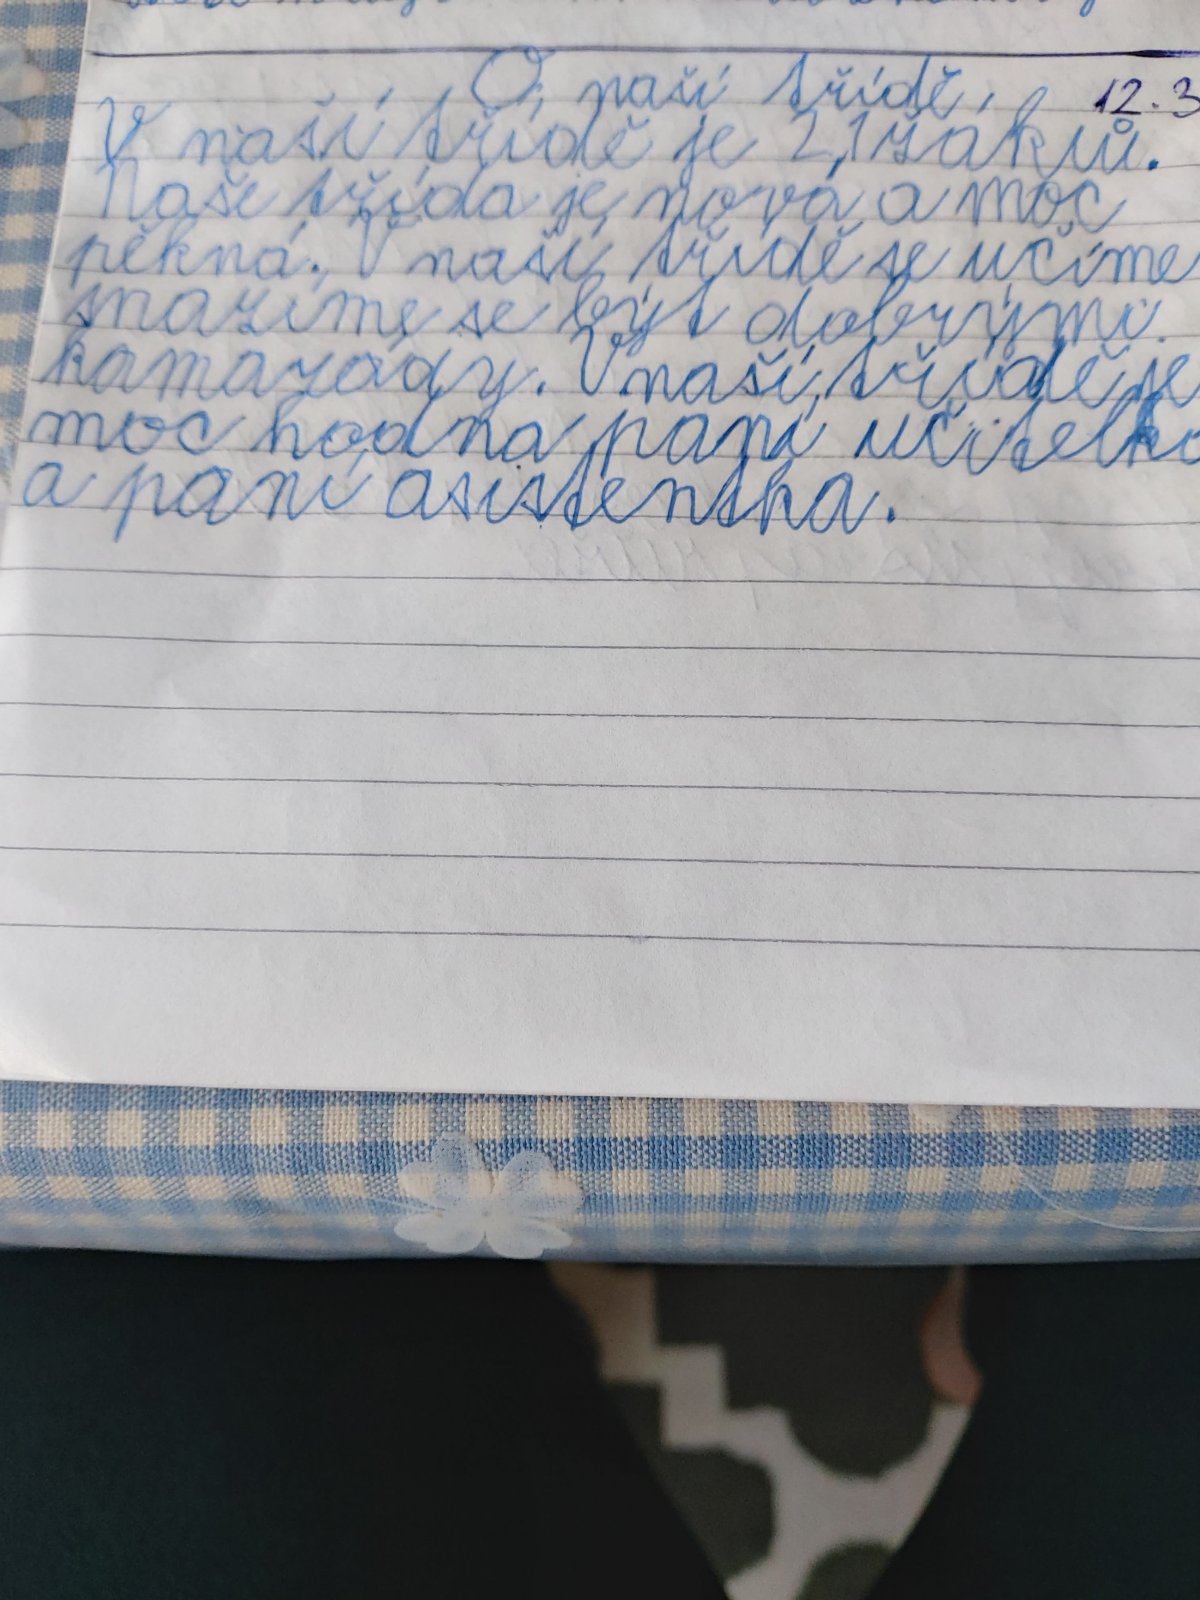 O naší třídě. 12.3
V naší třídě je 21 žáků.
Naše třída je nová a moc
pěkná. V naší třídě se učíme
snažíme se být dobrými
kamarády. V naší třídě je
moc hodná paní učitelka
a paní asistentka.